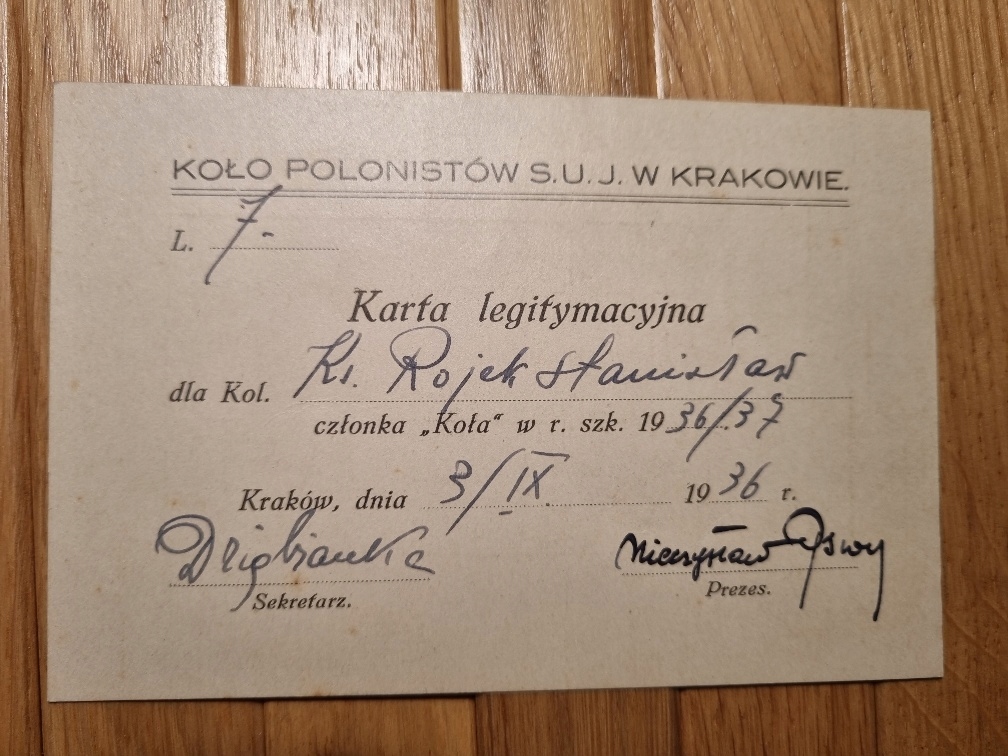 KOŁO POLONISTÓW S.U.J. W KRAKOWIE.
L. 7.-
Karta legitymacyjna
dla Kol. Ks. Rojek Stanisław
członka „Koła“ w r. szk. 1936/37
Kraków, dnia 3/IX. 1936 r.
Mieczysław
Sekretarz. Prezes.